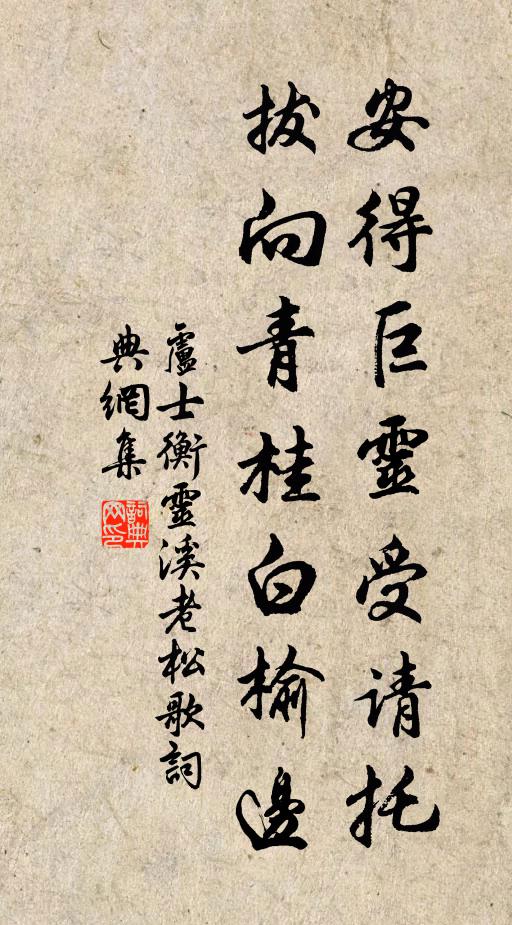 安得巨靈受请托
拔向青桂白榆邊
盧士衡靈溪老松歌詞
典網集
詞典網印